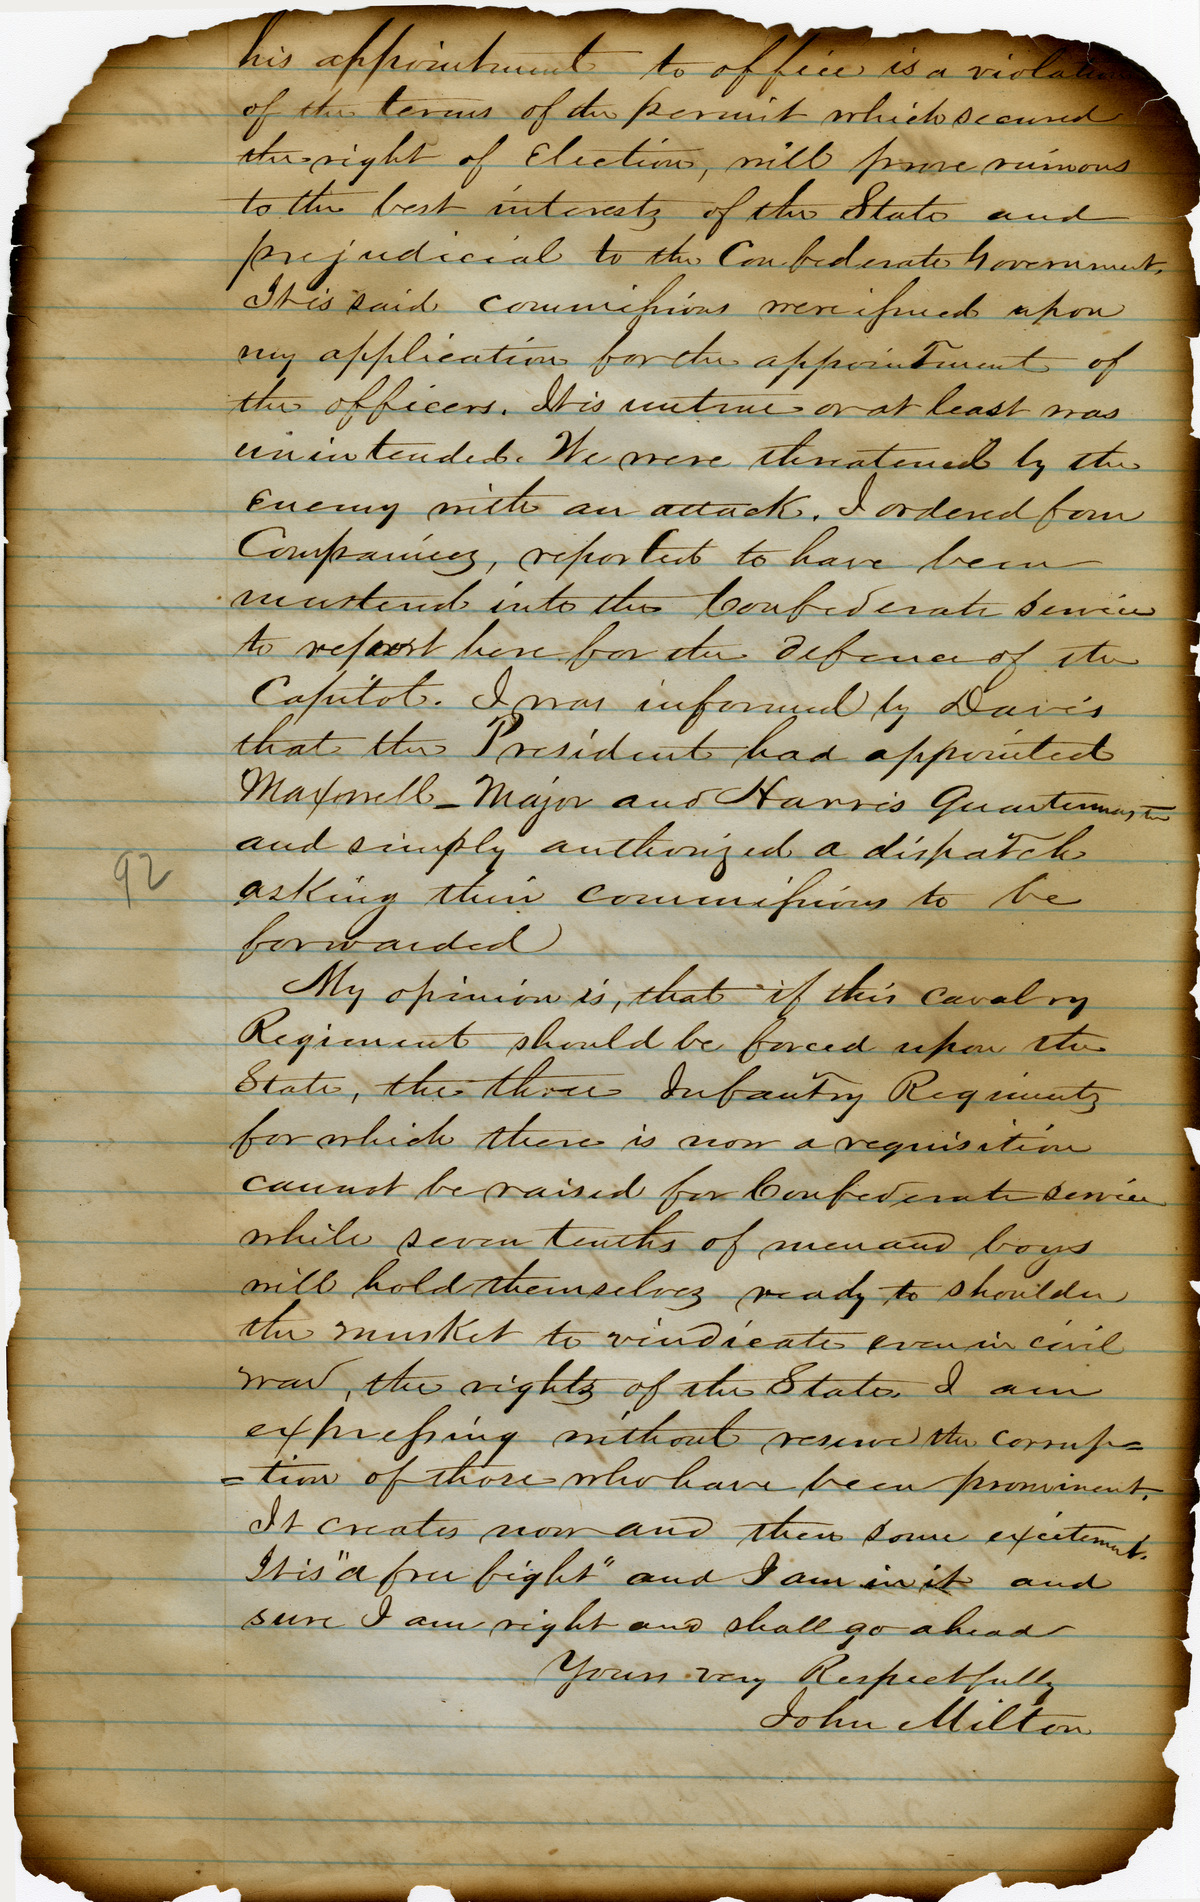 his appointment to office is a violation
of the terms of the permit which secured
the right of Election, will prove ruinous
to the best interests of the State and
prejudicial to the Confederate Government.
It is said commissions were issued upon
my application for the appointment of
the officers. It is untrue or at least was
unintended. We were threatened by the
Enemy with an attack. I ordered four
Companies, reported to have been
mustered into the Confederate service
to report here for the defence of the
Capitol. I was informed by Davis
that the President had appointed
Maxwell - Major and Harris Quartermaster
and simply authorized a dispatch
92
asking their commissions to be
forwarded
My opinion is, that if this cavalry
Regiment should be forced upon the
State, the three Infantry Regiments
for which there is now a requisition
cannot be raised for Confederate service
while seven tenths of men and boys
will hold themselves ready to shoulder
the musket to vindicate even in civil
war, the rights of the State. I am
expressing without reserve the corrup=
=tion of those who have been prominent.
It creates now and then some excitement.
It is "a free fight" and I am in it and
sure I am right and shall go ahead
Yours very Respectfully
John Milton